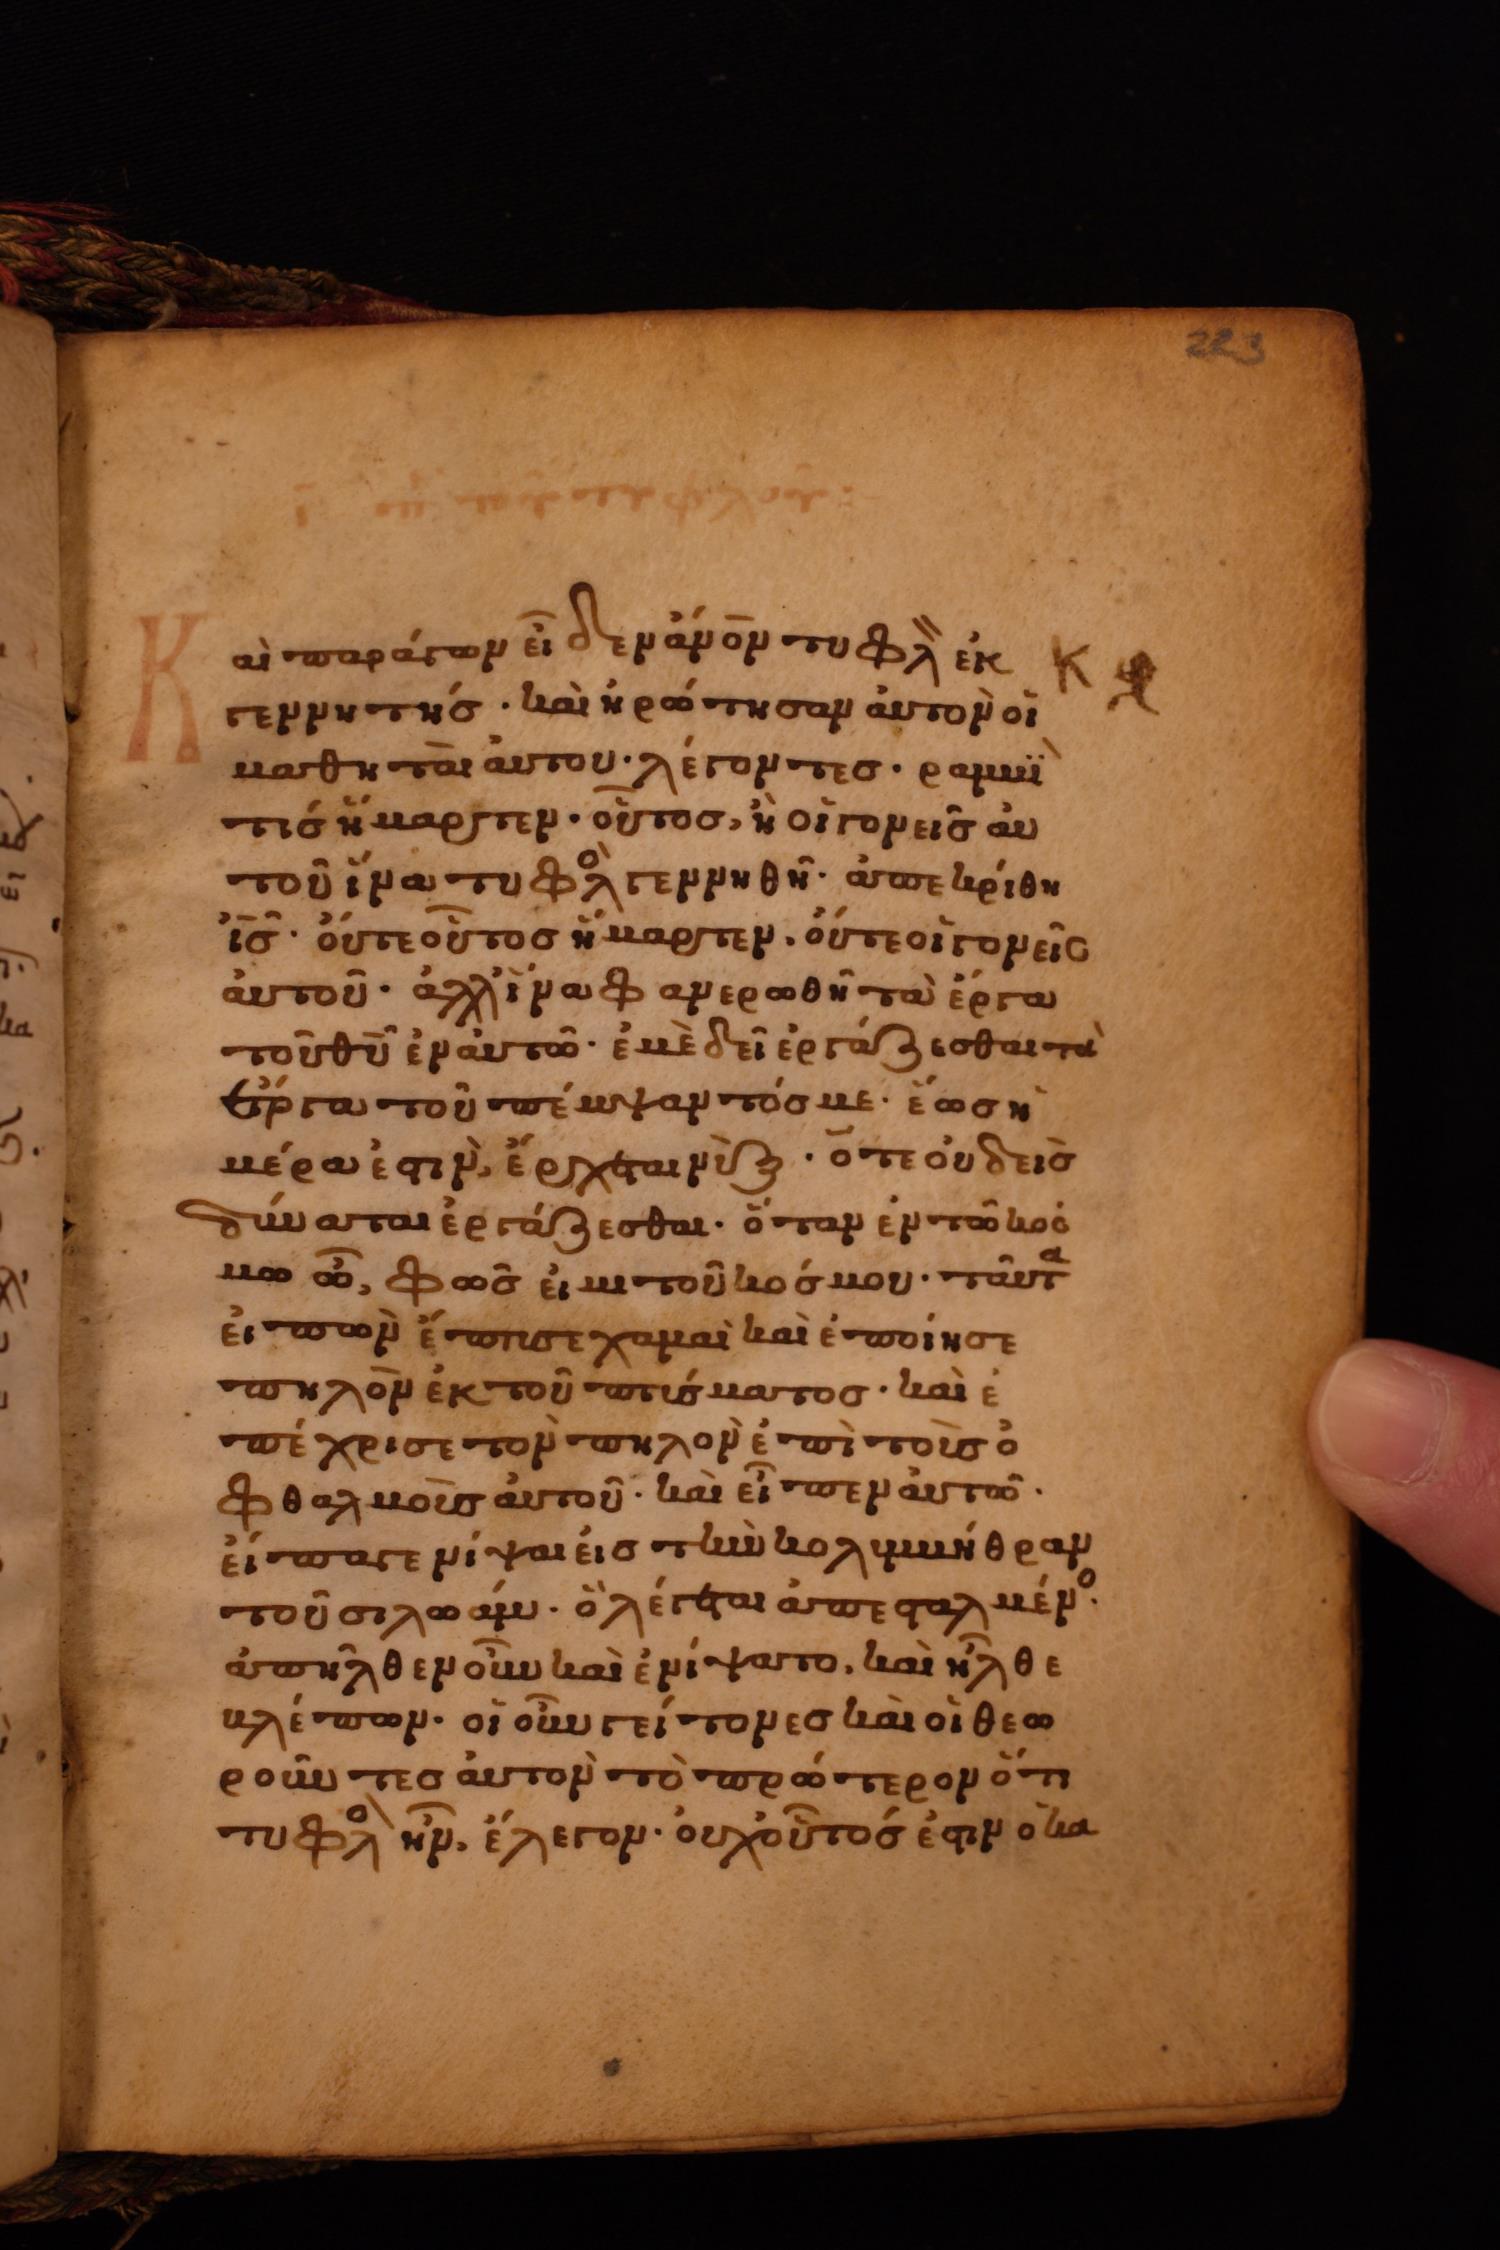 223
Καὶ παράγων εἶδεν ἄνον τυφλ ἐκ
γεννητῆσ · καὶ ἠρώτησαν ἀυτὸν οἱ
μαθηται ἀυτου · λέγοντεσ · ραββϊ
τίσ ἥμαρτεν · οὗτοσ, ἢ οἱ γονεῖσ ἀυ
τοῦ ἵνα τυφλο γεννηθῆ · ἀπεκρίθη
ἰσ · ὀύτε οὗτοσ ἥμαρτεν, ὀύτε οἱ γονεῖσ
ἀυτοῦ · ἀλλ ἵνα φανερωθῆ τὰ ἔργα
τοῦ θυ ἐν ἀυτῶ · ἐμὲ δεῖ ἐργάζεσθαι τὰ
ἔργα τοῦ πέμψαντόσ με · ἕωσ ἡ
μέρα ἐστὶν, ἔρχεται νὺξ · ὅτε ὀυδεὶσ
δύναται ἐργάζεσθαι · ὅταν ἐν τῶ κοσ
μω ὦ, φῶσ ἐιμι τοῦ κόσμου · ταῦτα
ἐιπὼν ἔπτυσε χαμαὶ καὶ ἐποίησε
πηλὸν ἐκ τοῦ πτύσματοσ · καὶ ἐ
πέχρισε τὸν πηλὸν ἐπὶ τοὺσ ὀ
φθαλμοὺσ ἀυτοῦ · καὶ εἶπεν ἀυτῶ ·
ὕπαγε νίψαι ἐισ τὴν κολυμβήθραν
τοῦ σιλωάμ · ὃ λέγεται ἀπεσταλμένο ·
ἀπῆλθεν οὖν καὶ ἐνίψατο, καὶ ἦλθε
βλέπων · οἱ οὖν γείτονεσ καὶ οἱ θεω
ροῦντεσ ἀυτὸν τὸ πρώτερον ὅτι
τυφλο ἦν, ἔλεγον · ὀυχ οὗτόσ ἐστιν ὁ κα